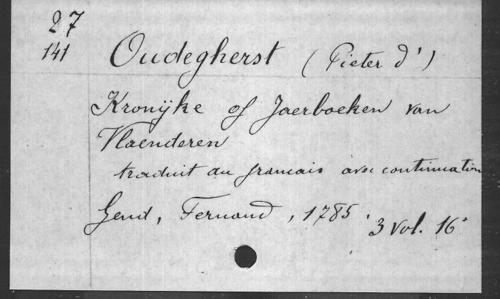 27
141
Oudegherst (Pieter d')
Kronijke of Jaerboeken van
Vlaenderen
traduit du français avec continuation
Gend, Fernand, 1785.
3 vol. 16°